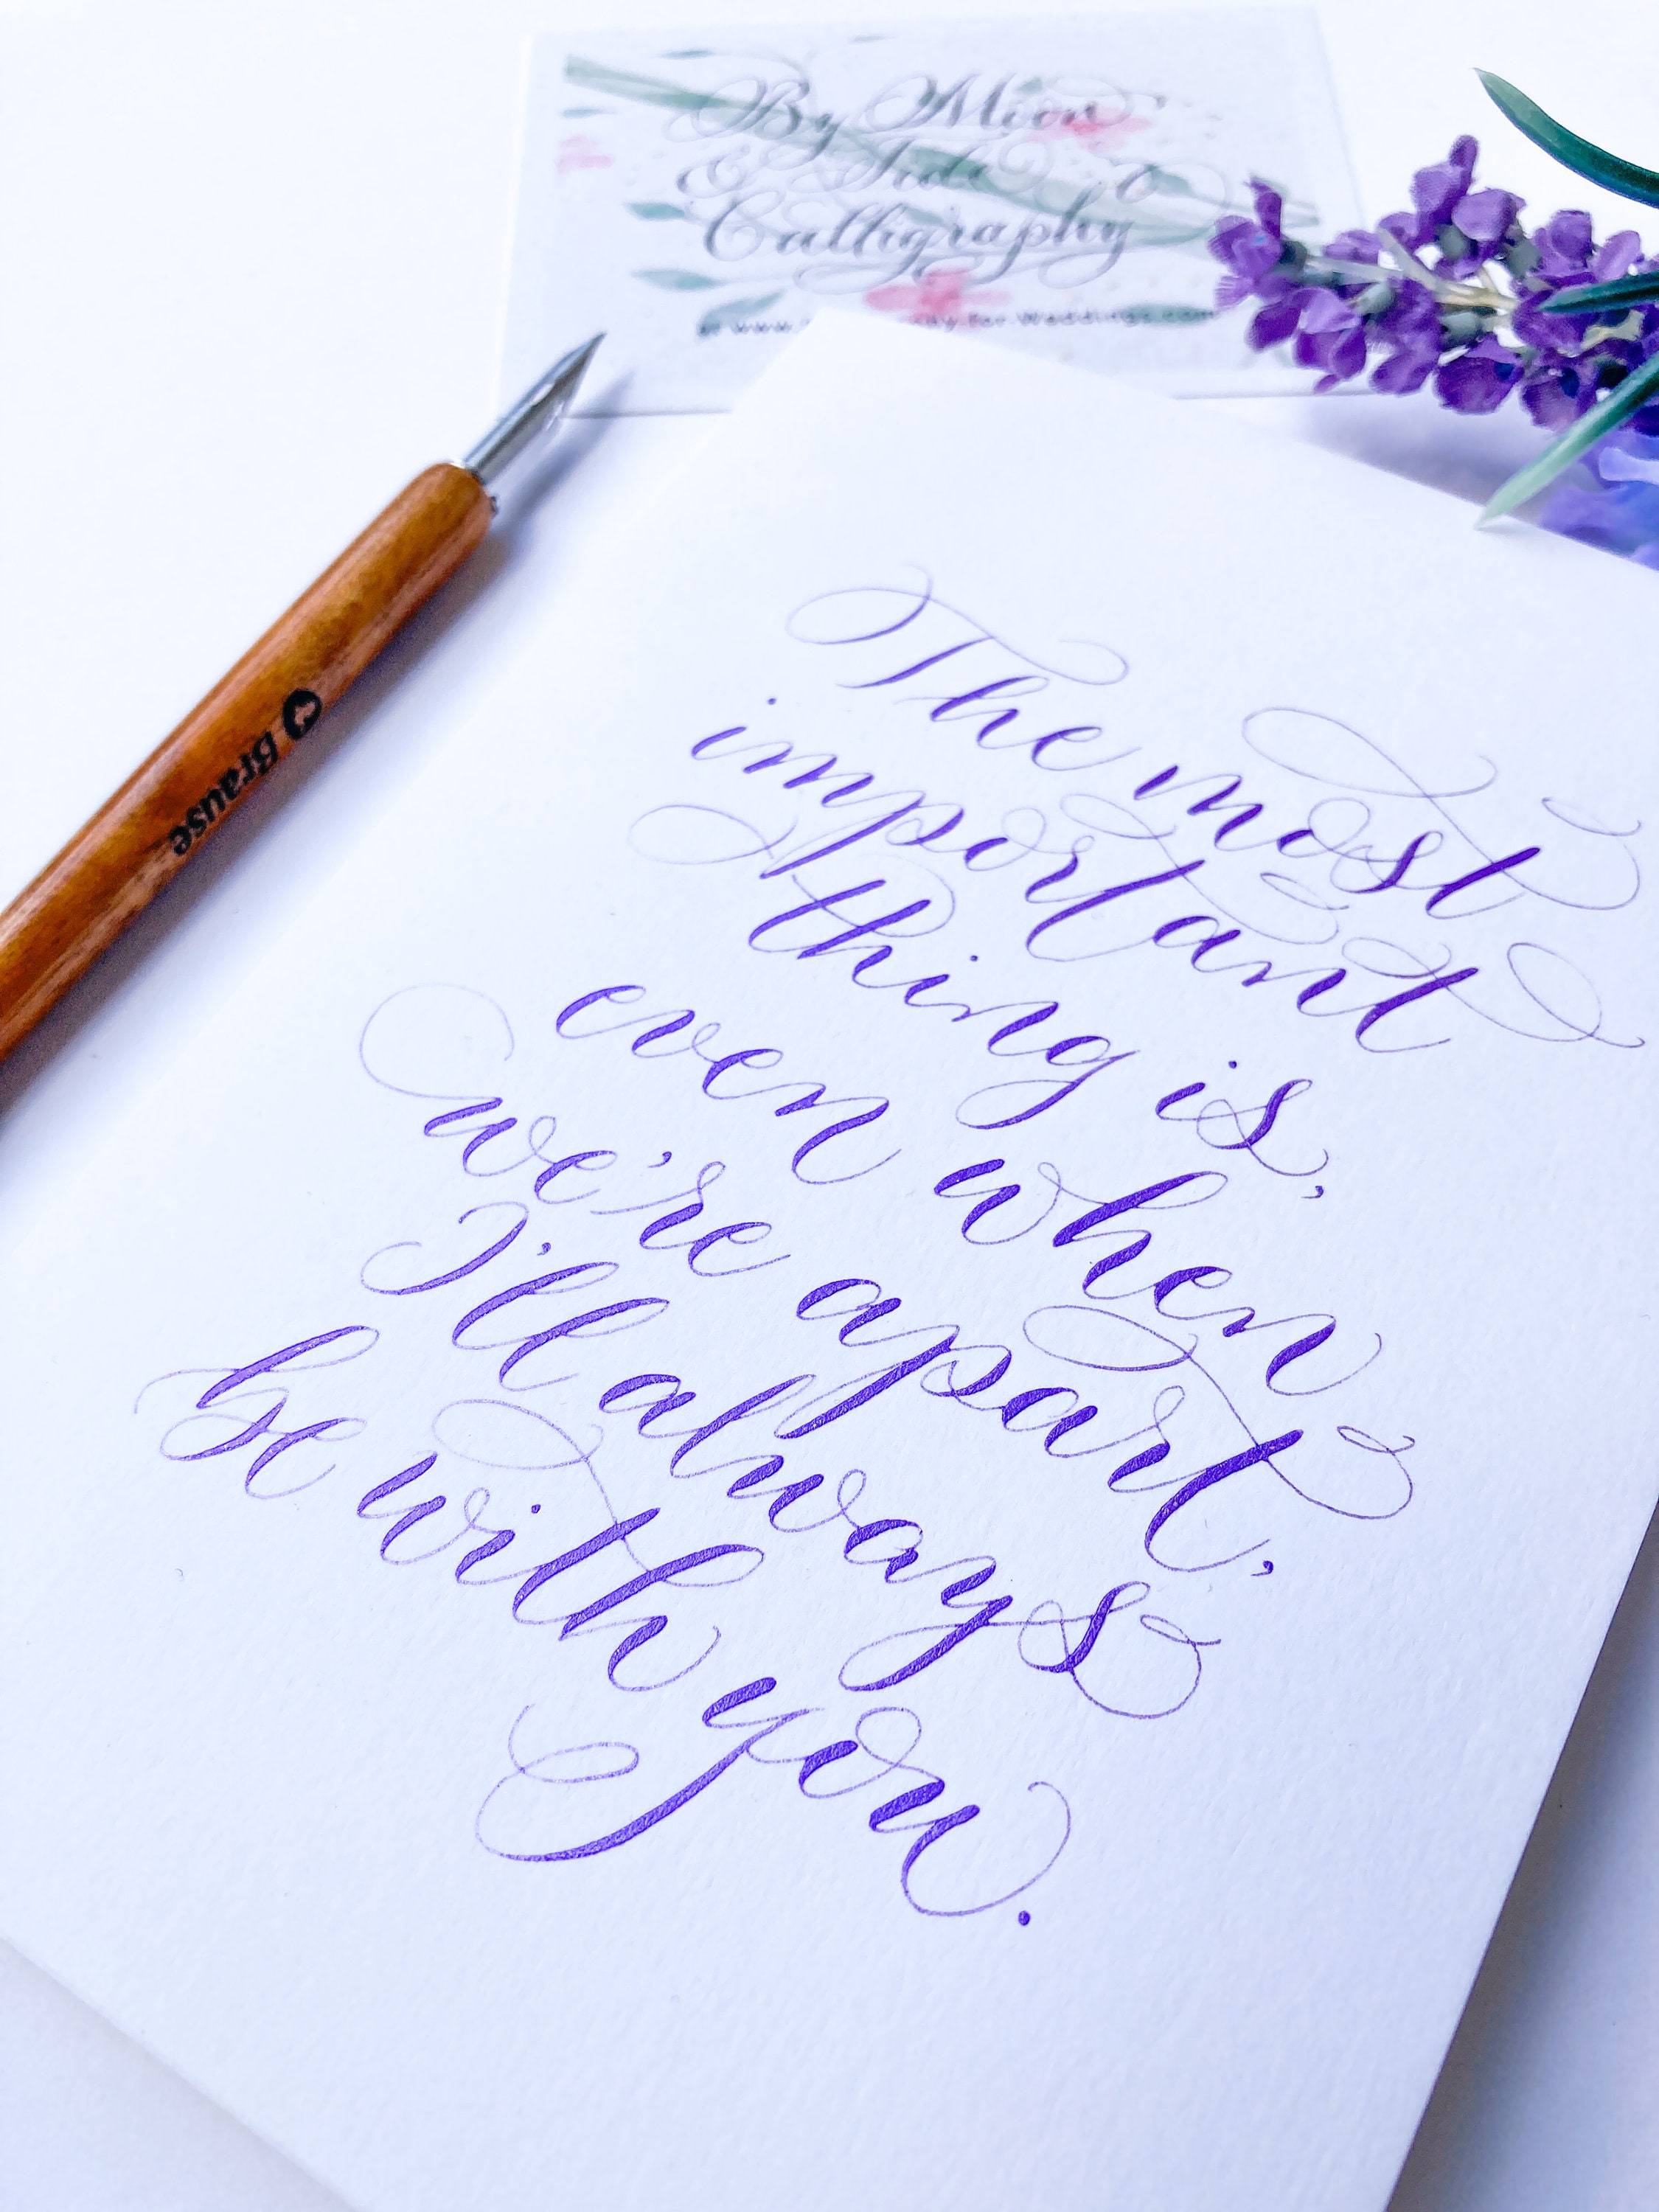 By Moon
& Tide
Calligraphy
Weddings.com
Brause
The most
important
thing is,
even when
we're apart,
I'll always
be with you.